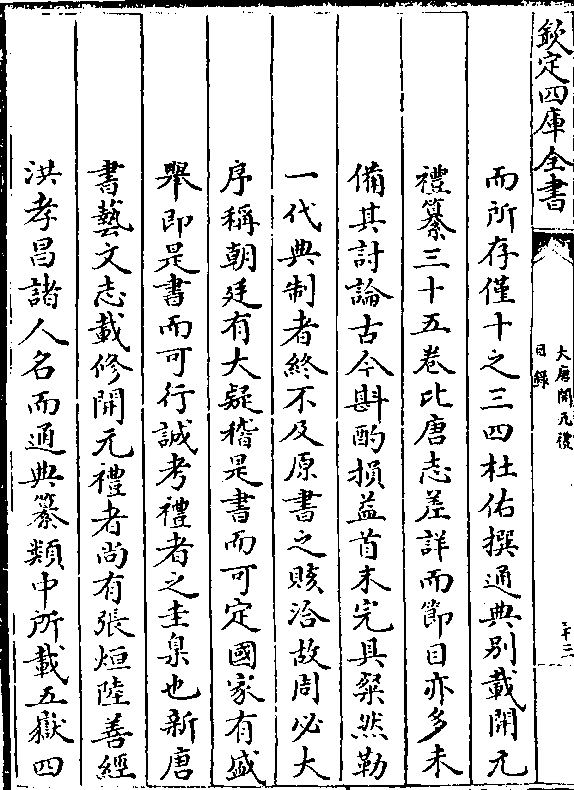 欽定四庫全書
大唐開元禮
目錄
三十三
而所存僅十之三四杜佑撰通典别載開元
禮纂三十五卷比唐志差詳而節目亦多未
備其討論古今斟酌損益首末完具粲然勒
一代典制者終不及原書之賅洽故周必大
序稱朝廷有大疑稽是書而可定國家有盛
舉即是書而可行誠考禮者之圭臬也新唐
書藝文志載修開元禮者尚有張烜陸善經
洪孝昌諸人名而通典纂類中所載五嶽四